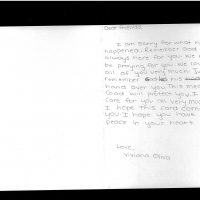 Dear friend(s)
I am sorry for what
happened. Remember God
always here for you. We
be praying for you. We lov
all of you very much. Ju
remember God has his
hand over you. This mea
God will protect you. I
care for you all very muc
I hope this card com
you. I hope you have
peace in your heart
Love,
Viviana Oliva